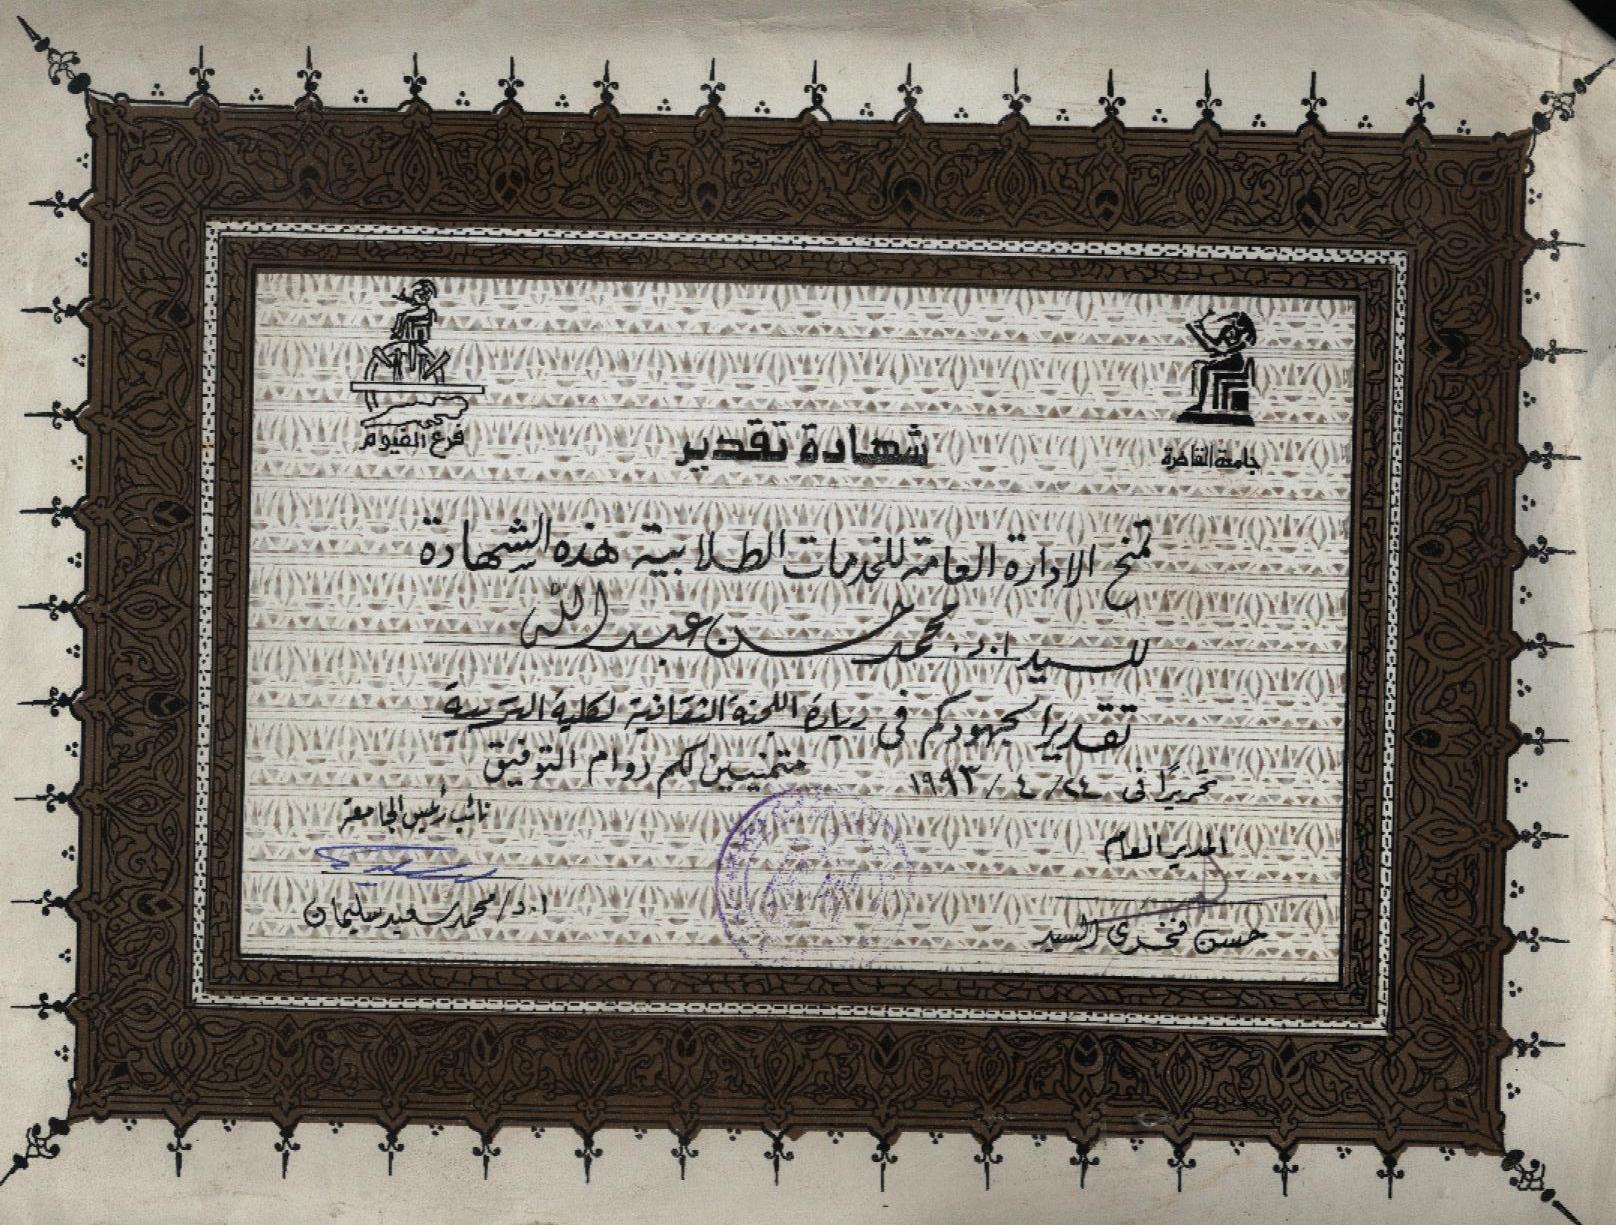 جامعة القاهرة
فرع الفيوم
شهادة تقدير
تمنح الادارة العامة للخدمات الطلابية هذه الشهادة
للسيد ا.د. محمد حسن عبد الله
تقديرا لجهودكم فى ريادة اللجنة الثقافية لكلية التربية
متمنيين لكم دوام التوفيق
تحريرًا فى ٢٤/ ٤ / ١٩٩٣
المدير العام
نائب رئيس الجامعة
حسن فخرى السيد
ا.د/ محمد سعيد سليمان